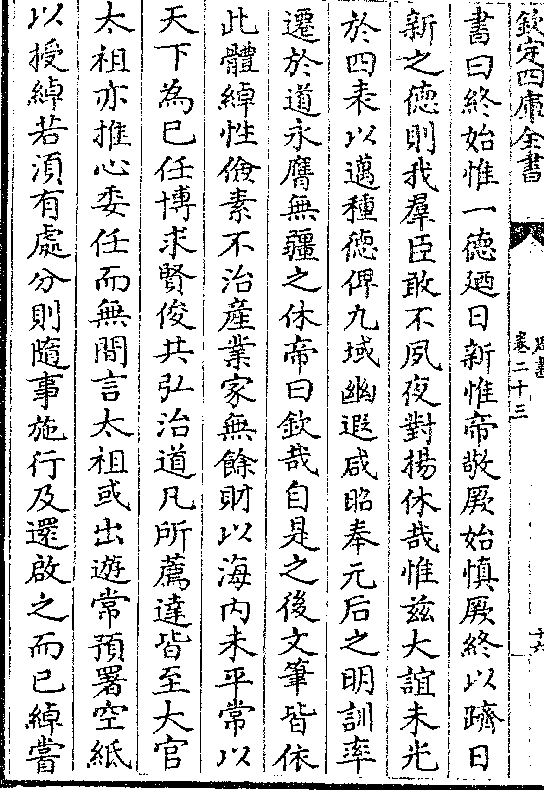 欽定四庫全書
周書
卷二十三
十六
書曰終始惟一德廼日新惟帝敬厥始慎厥終以躋日
新之德則我羣臣敢不夙夜對揚休哉惟兹大誼未光
於四表以邁種德俾九域幽遐咸昭奉元后之明訓率
遷於道永膺無疆之休帝曰欽哉自是之後文筆皆依
此體綽性儉素不治產業家無餘財以海内未平常以
天下為已任博求賢俊共弘治道凡所薦達皆至大官
太祖亦推心委任而無間言太祖或出遊常預署空紙
以授綽若湏有處分則隨事施行及還啟之而已綽嘗